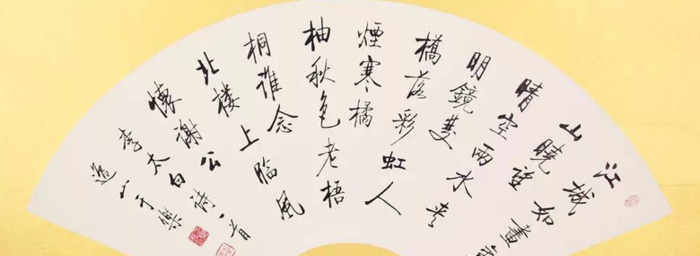 江城如畫
山曉望
晴空兩水夾
明鏡雙
橋落彩虹人
煙寒橘
柚秋色老梧
桐誰念
北楼上臨風
懷謝公
李太白詩一首